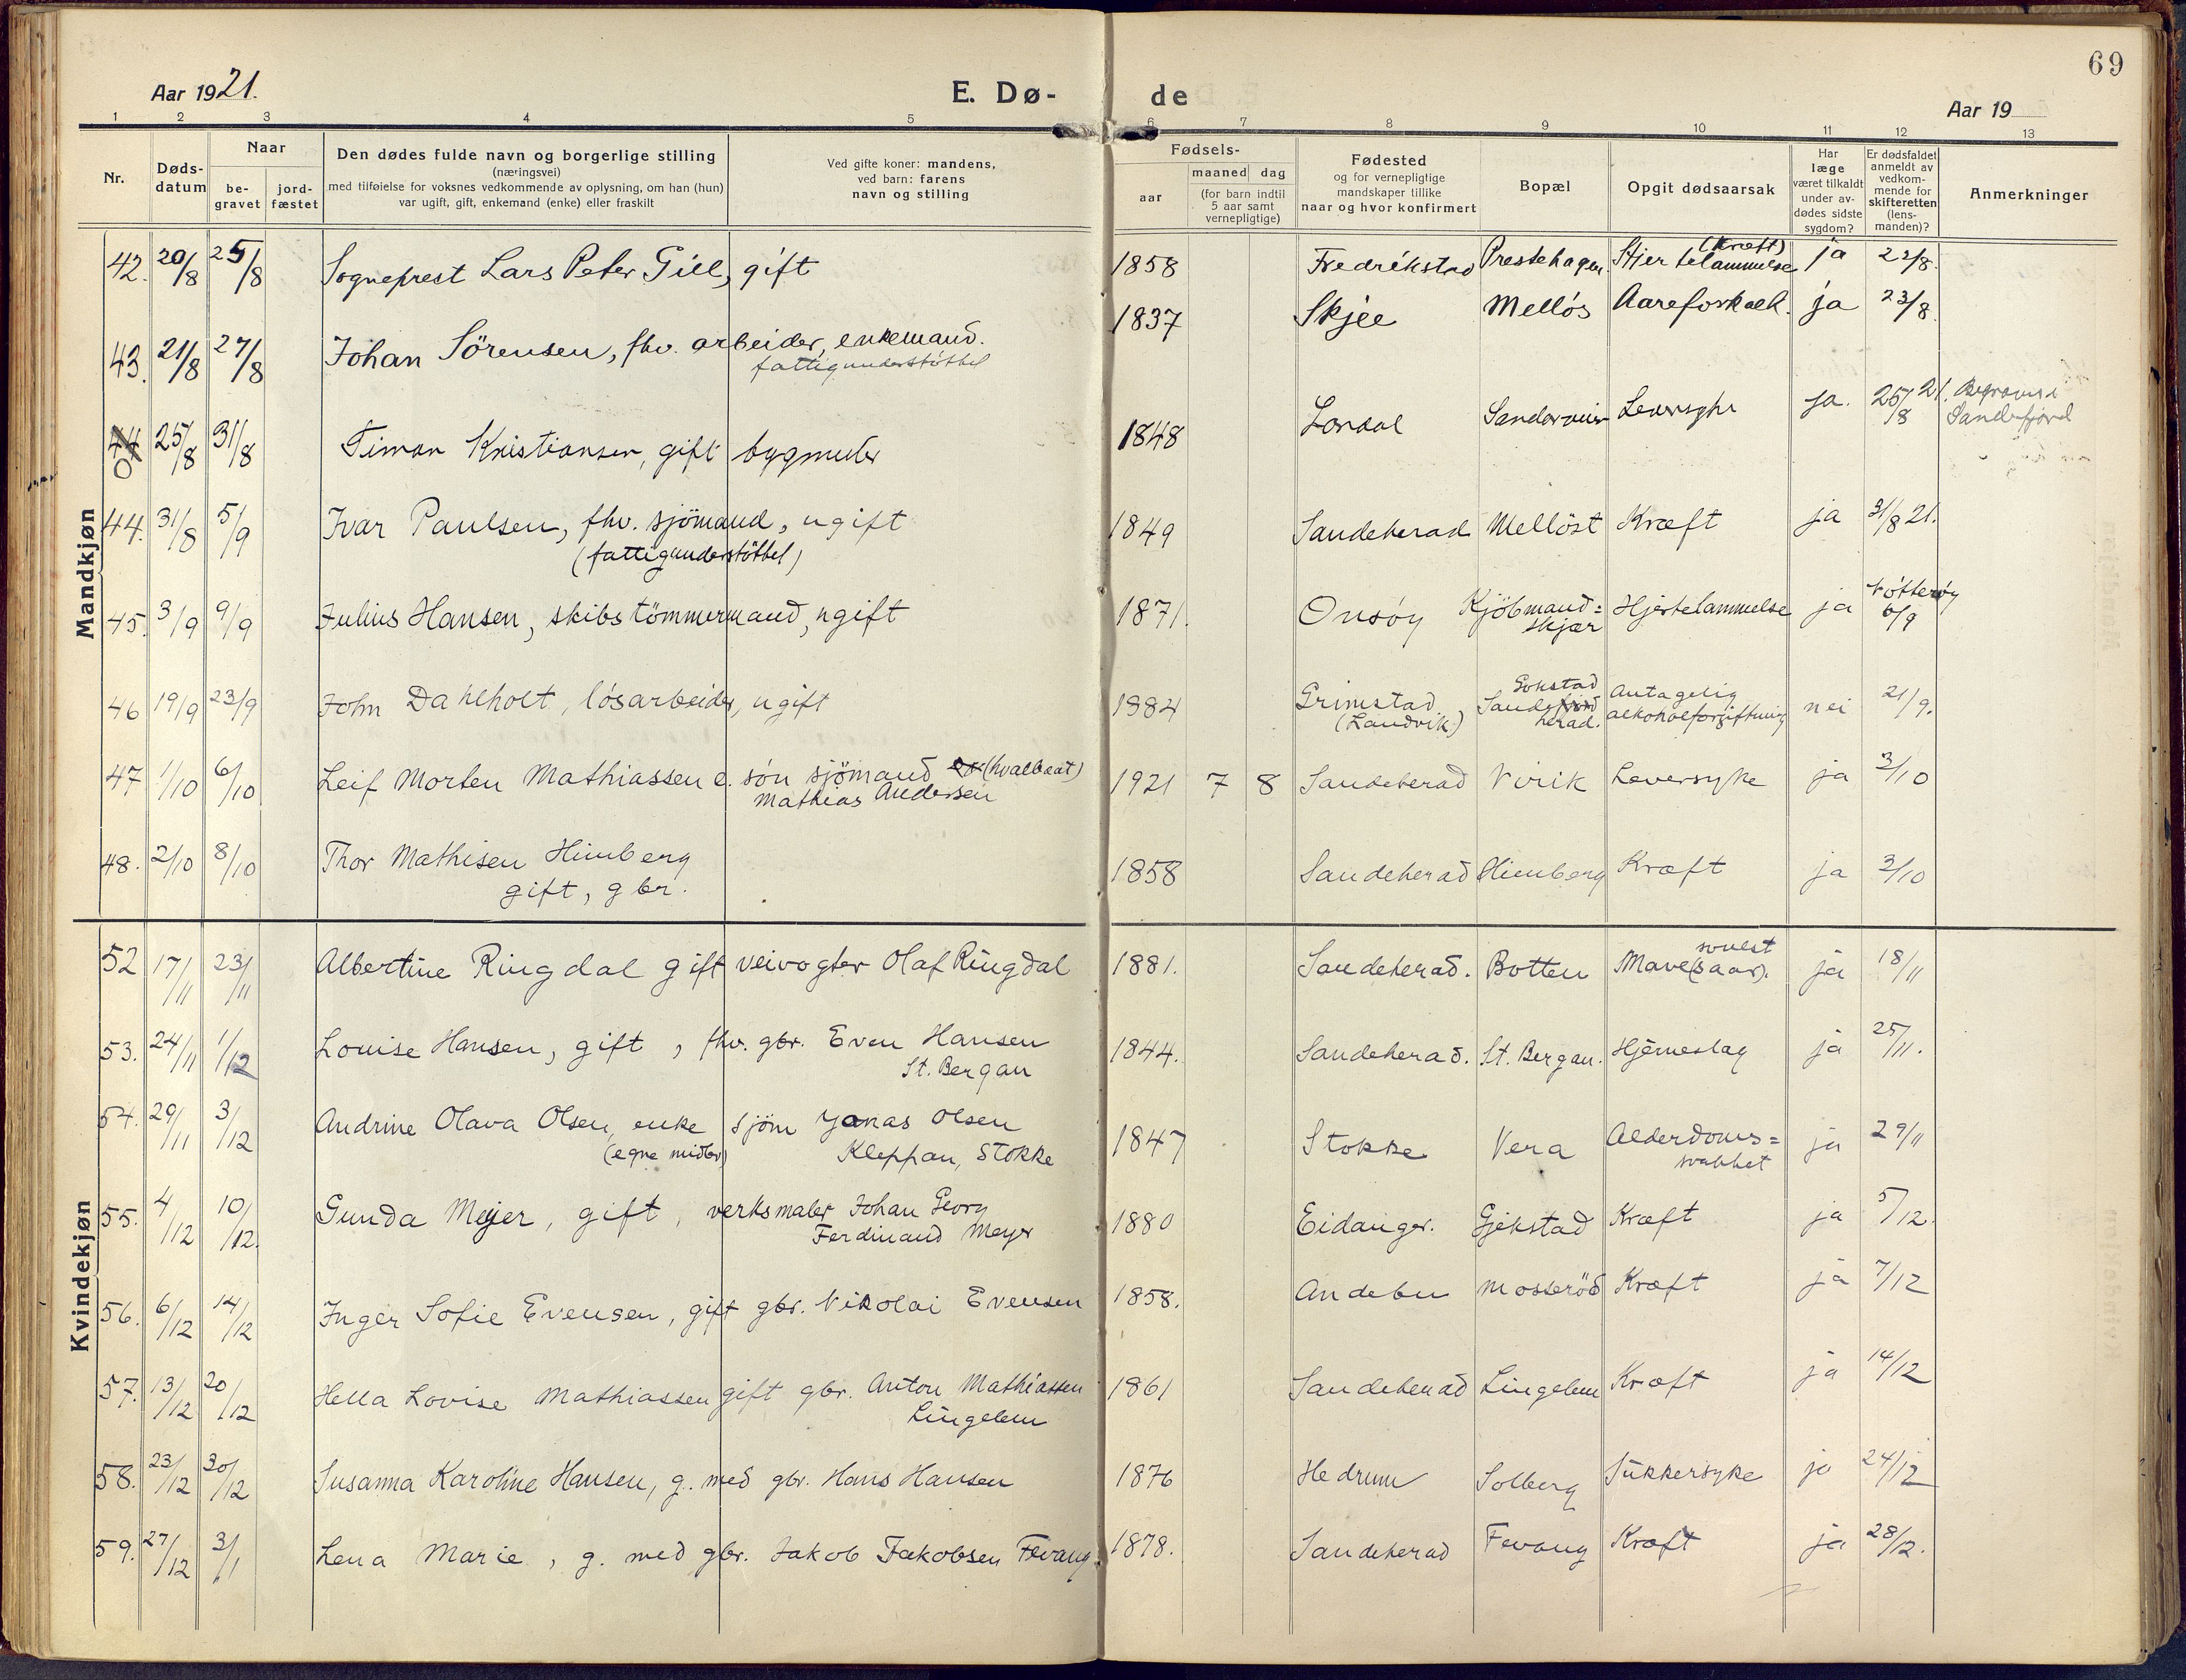 69
Aar 1921.
E. Dø-
de
Aar 19
1 2 3 4 5 6 7 8 9 10 11 12 13
Nr.
Døds-
datum
Naar
be-
gravet
jord-
fæstet
Den dødes fulde navn og borgerlige stilling
(næringsvei)
med tilføielse for voksnes vedkommende av oplysning, om han (hun)
var ugift, gift, enkemand (enke) eller fraskilt
Ved gifte koner: mandens,
ved barn: farens
navn og stilling
Fødsels-
aar
maaned dag
(for barn indtil
5 aar samt
vernepligtige)
Fødested
og for vernepligtige
mandskaper tillike
naar og hvor konfirmert
Bopæl
Opgit dødsaarsak
Har
læge
været tilkaldt
under av-
dødes sidste
sygdom?
Er dødsfaldet
anmeldt av
vedkom-
mende for
skifteretten
(lens-
manden)?
Anmerkninger
Mandkjøn
42. 20/8 25/8 Sogneprest Lars Peter Gill, gift 1858 Fredrikstad Prestehagen Hjertelammelse (kræft) ja 22/8.
43. 21/8 27/8 Johan Sörensen, fhv. arbeider, enkemand. 1837 Skjee Mellös Aareforkalk. ja 23/8.
fattigunderstöttet
44 0 25/8 31/8 Timan Kristiansen, gift bygmester 1848 Lardal Sandarveien Leversyke ja. 25/8 21. Begravet i
Sandefjord
44. 31/8 5/9 Ivar Paulsen, fhv. sjömand, ugift 1849 Sandeherad Mellöst Kræft ja 31/8 21.
(fattigunderstöttet)
45. 3/9 9/9 Julius Hansen, skibstömmermand, ugift 1871. Onsöy Kjöbmand=
skjær Hjertelammelse ja Nötteröy
6/9
46 19/9 23/9 John Dahlholt, lösarbeider, ugift 1884 Grimstad
(Landvik) Gokstad
Sande
herad. Antagelig
alkoholforgiftning nei 21/9.
47 1/10 6/10 Leif Morten Mathiassen e. sön sjömand (hvalbaat) 1921 7 8 Sandeherad Virik Leversyke ja 3/10
Mathias Andersen
48. 2/10 8/10 Thor Mathisen Himberg 1858 Sandeherad Himberg Kræft ja 3/10
gift, gbr.
Kvindekjøn
52 17/11 23/11 Albertine Ringdal gift veivogter Olaf Ringdal 1881. Sandeherad. Botten Mave(saar). svulst ja 18/11
53. 24/11 1/12 Louise Hansen, gift, fhv. gbr. Even Hansen 1844. Sandeherad. St. Bergan. Hjerneslag ja 25/11.
St. Bergan
54. 29/11 3/12 Andrine Olava Olsen, enke sjöm Jonas Olsen 1847 Stokke Vera Alderdoms=
svakhet ja 29/11
(egne midler) Kleppan, Stokke
55. 4/12 10/12. Gunda Meyer, gift, verksmaler Johan Georg 1880 Eidanger. Gjekstad Kræft ja 5/12.
Ferdinand Meyer
56. 6/12 14/12 Inger Sofie Evensen, gift gbr. Nikolai Evensen 1858. Andebu Mosseröd Kræft ja 7/12
57. 13/12 20/12 Hella Lovise Mathiassen gift gbr. Anton Mathiassen 1861 Sandeherad Lingelem Kræft ja 14/12
Lingelem
58. 23/12 30/12 Susanna Karoline Hansen, g. med gbr. Hans Hansen 1876 Hedrum Solberg Sukkersyke ja 24/12
59. 27/12 3/1 Lena Marie, g. med gbr. Jakob Jakobsen Fevang 1878. Sandeherad Fevang Kræft ja 28/12.